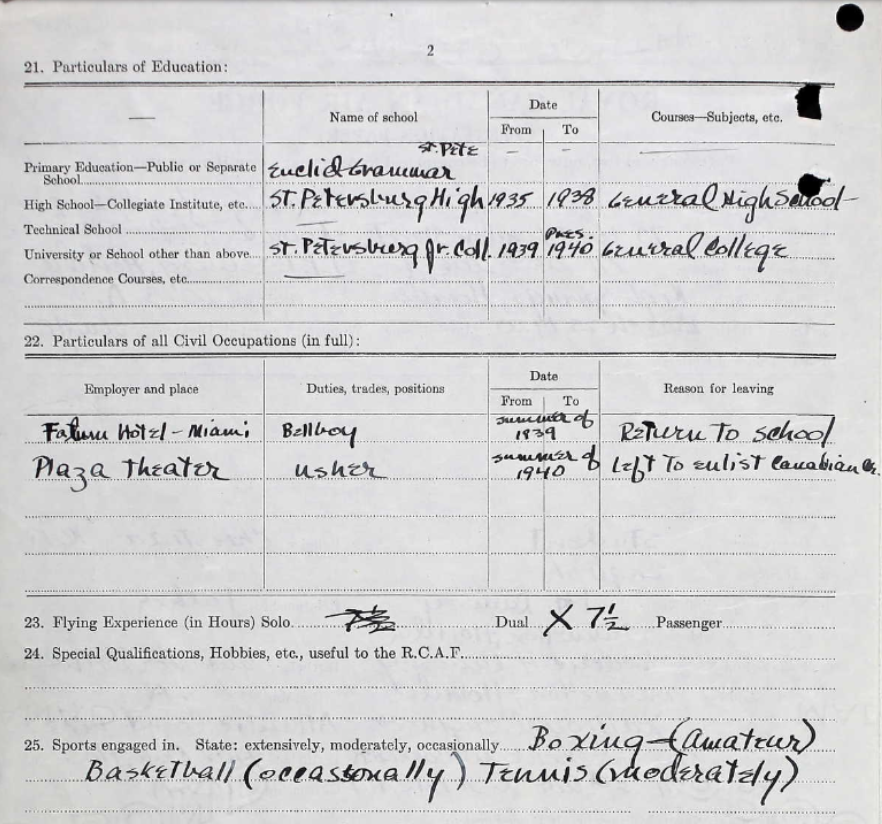 2
21. Particulars of Education:
— Name of school Date Courses—Subjects, etc.
From To
St. Pete
Primary Education—Public or Separate School Euclid Grammar — —
High School—Collegiate Institute, etc. St. Petersburg High 1935 1938 General High School
Technical School
Pres.
University or School other than above St. Petersburg Jr. Coll. 1939 1940 General College
Correspondence Courses, etc.
22. Particulars of all Civil Occupations (in full):
Employer and place Duties, trades, positions Date Reason for leaving
From To
Hotel – Miami Bellboy summer of 1939 Return to school
Plaza Theater usher summer of 1940 Left to enlist Canadian
23. Flying Experience (in Hours) Solo Dual X 7½ Passenger
24. Special Qualifications, Hobbies, etc., useful to the R.C.A.F.
25. Sports engaged in. State: extensively, moderately, occasionally Boxing – (amateur)
Basketball (occasionally) Tennis (moderately)